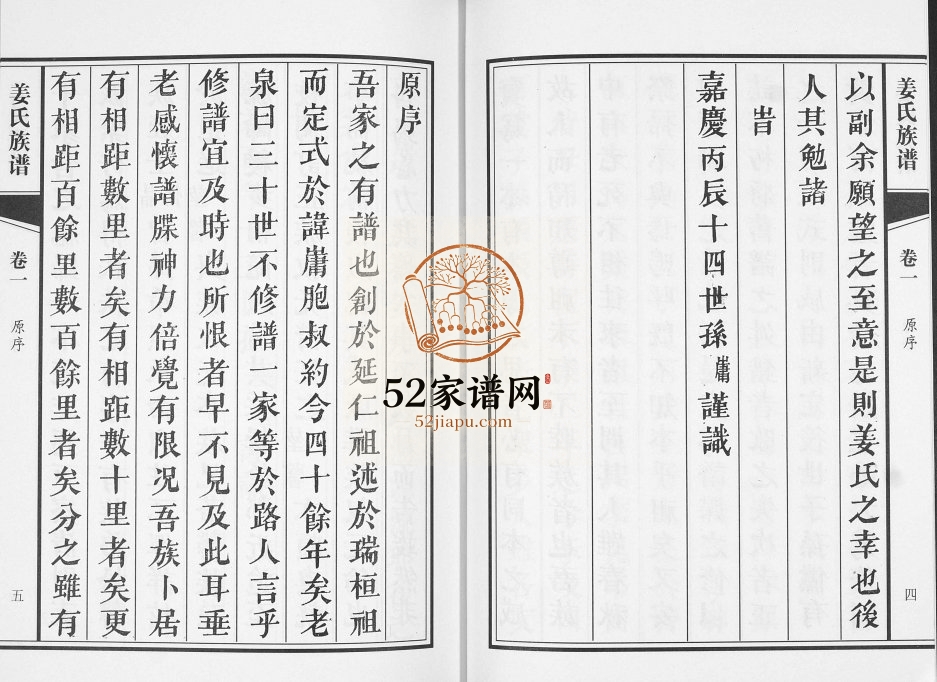 姜氏族谱
卷一
原序
四
以副余願望之至意是則姜氏之幸也後
人其勉諸
旹
嘉慶丙辰十四世孫 謹識
原序
吾家之有譜也創於延仁祖述於瑞桓祖
而定式於諱 胞叔約今四十餘年矣老
泉曰三十世不修譜一家等於路人言乎
修譜宜及時也所恨者早不見及此耳垂
老感懷譜牒神力倍覺有限况吾族卜居
有相距數里者矣有相距數十里者矣更
有相距百餘里數百餘里者矣分之雖有
姜氏族谱
卷一
原序
五
52家谱网
52jiapu.com